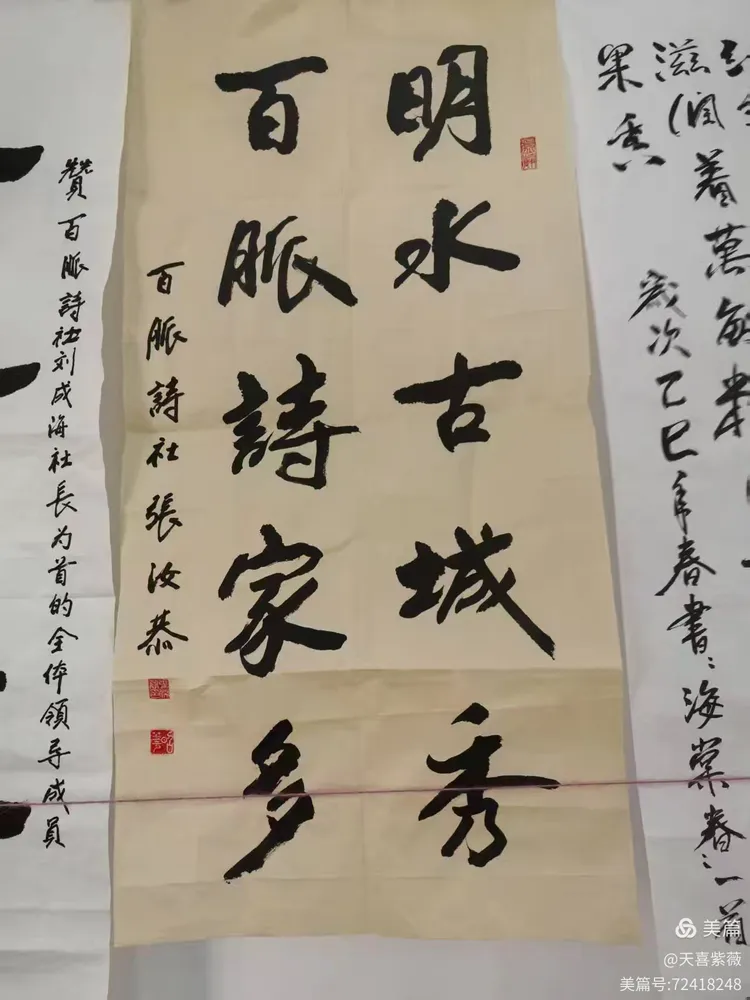 滋润着萬
果香
歲次乙巳年春書海棠春一首
明水古城秀
百脈詩家多
百脈詩社張汝恭
贊百脈詩社刘成海社长为首的全体領导成員
美篇
@天喜紫薇
美篇号:72418248